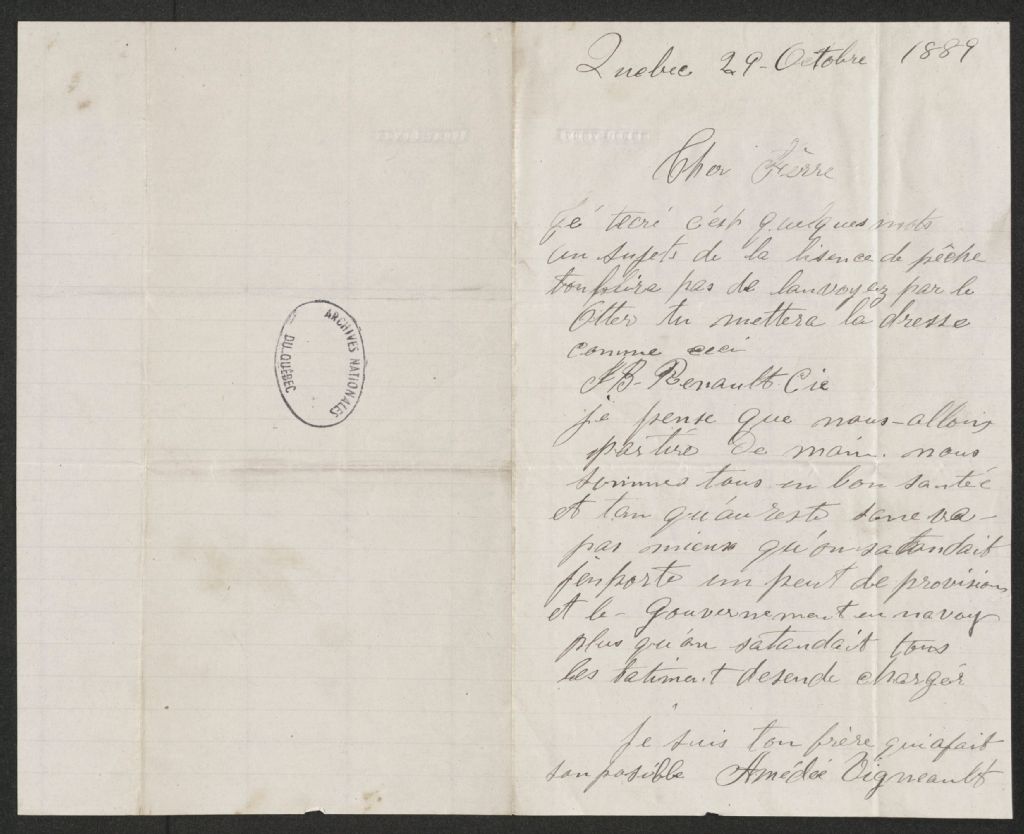 ARCHIVES NATIONALES
DU QUÉBEC
Quebec 29 - Octobre 1889
Cher Fièrre
Jé tecré c'est quelques mots
au sujets de la lisence de pêche
toublira pas de lanvoyez par le
Otter tu mettera la dresse
comme ceci
J B - Renault Cie
je pense que nous - allons
partire de main. nous
sommes tous en bon santée
et tan qu'au reste sane va -
pas mieux qu'on satandait
j'enporte un peut de provisions
et le - Gouvernement en navoy
plus qu'on satandait tous
les batiment desende chargér
Je suis ton frère qui a fait
son posible Amédée Vigneault